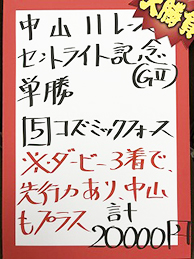 大勝負
中山11レース
セントライト記念
(GⅡ)
単勝
5 コズミックフォース
※ダービー3着で、
先行力あり、中山
もプラス 計
20000円